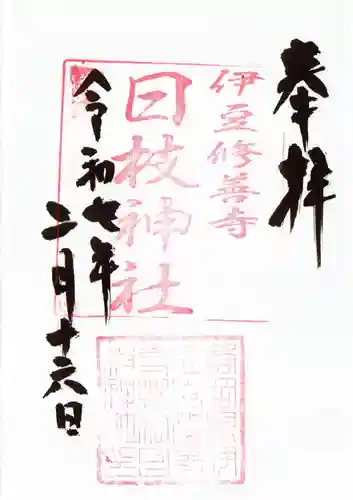 奉拝
伊豆修善寺
日枝神社
令和七年
二月十六日